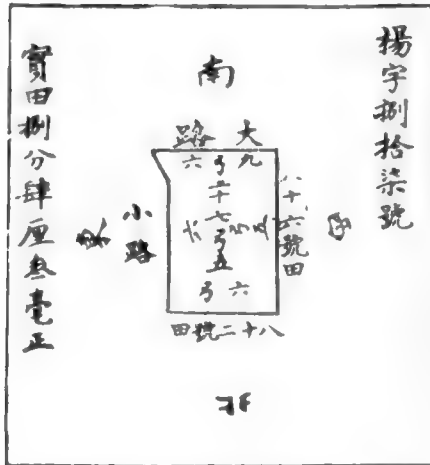 楊字捌拾柒號
南
大路
九弓六
二十七弓五
六弓
八十六號田
小路
八十二號田
北
實田捌分肆厘叁毫正